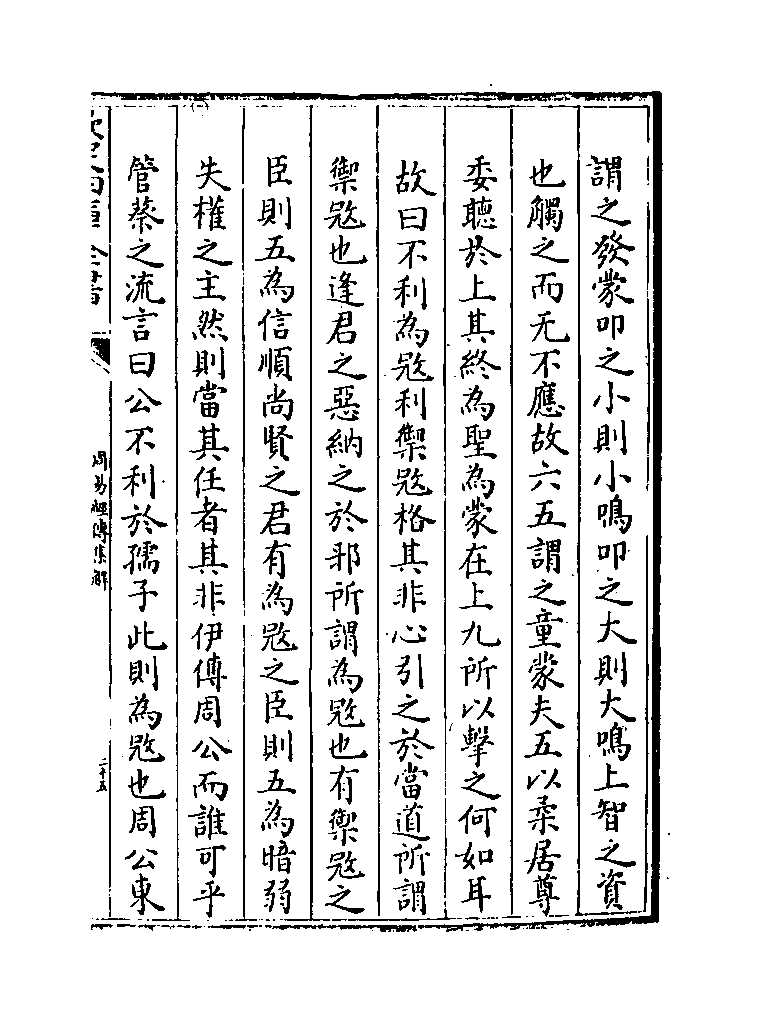 謂之發蒙叩之小則小鳴叩之大則大鳴上智之資
也觸之而无不應故六五謂之童蒙夫五以柔居尊
委聽於上其終為聖為蒙在上九所以擊之何如耳
故曰不利為㓂利禦㓂格其非心引之於當道所謂
禦㓂也逢君之惡納之於邪所謂為㓂也有禦㓂之
臣則五為信順尚賢之君有為㓂之臣則五為暗弱
失權之主然則當其任者其非伊傅周公而誰可乎
管蔡之流言曰公不利於孺子此則為㓂也周公東
欽定四庫全書
周易經傳集解
二十五